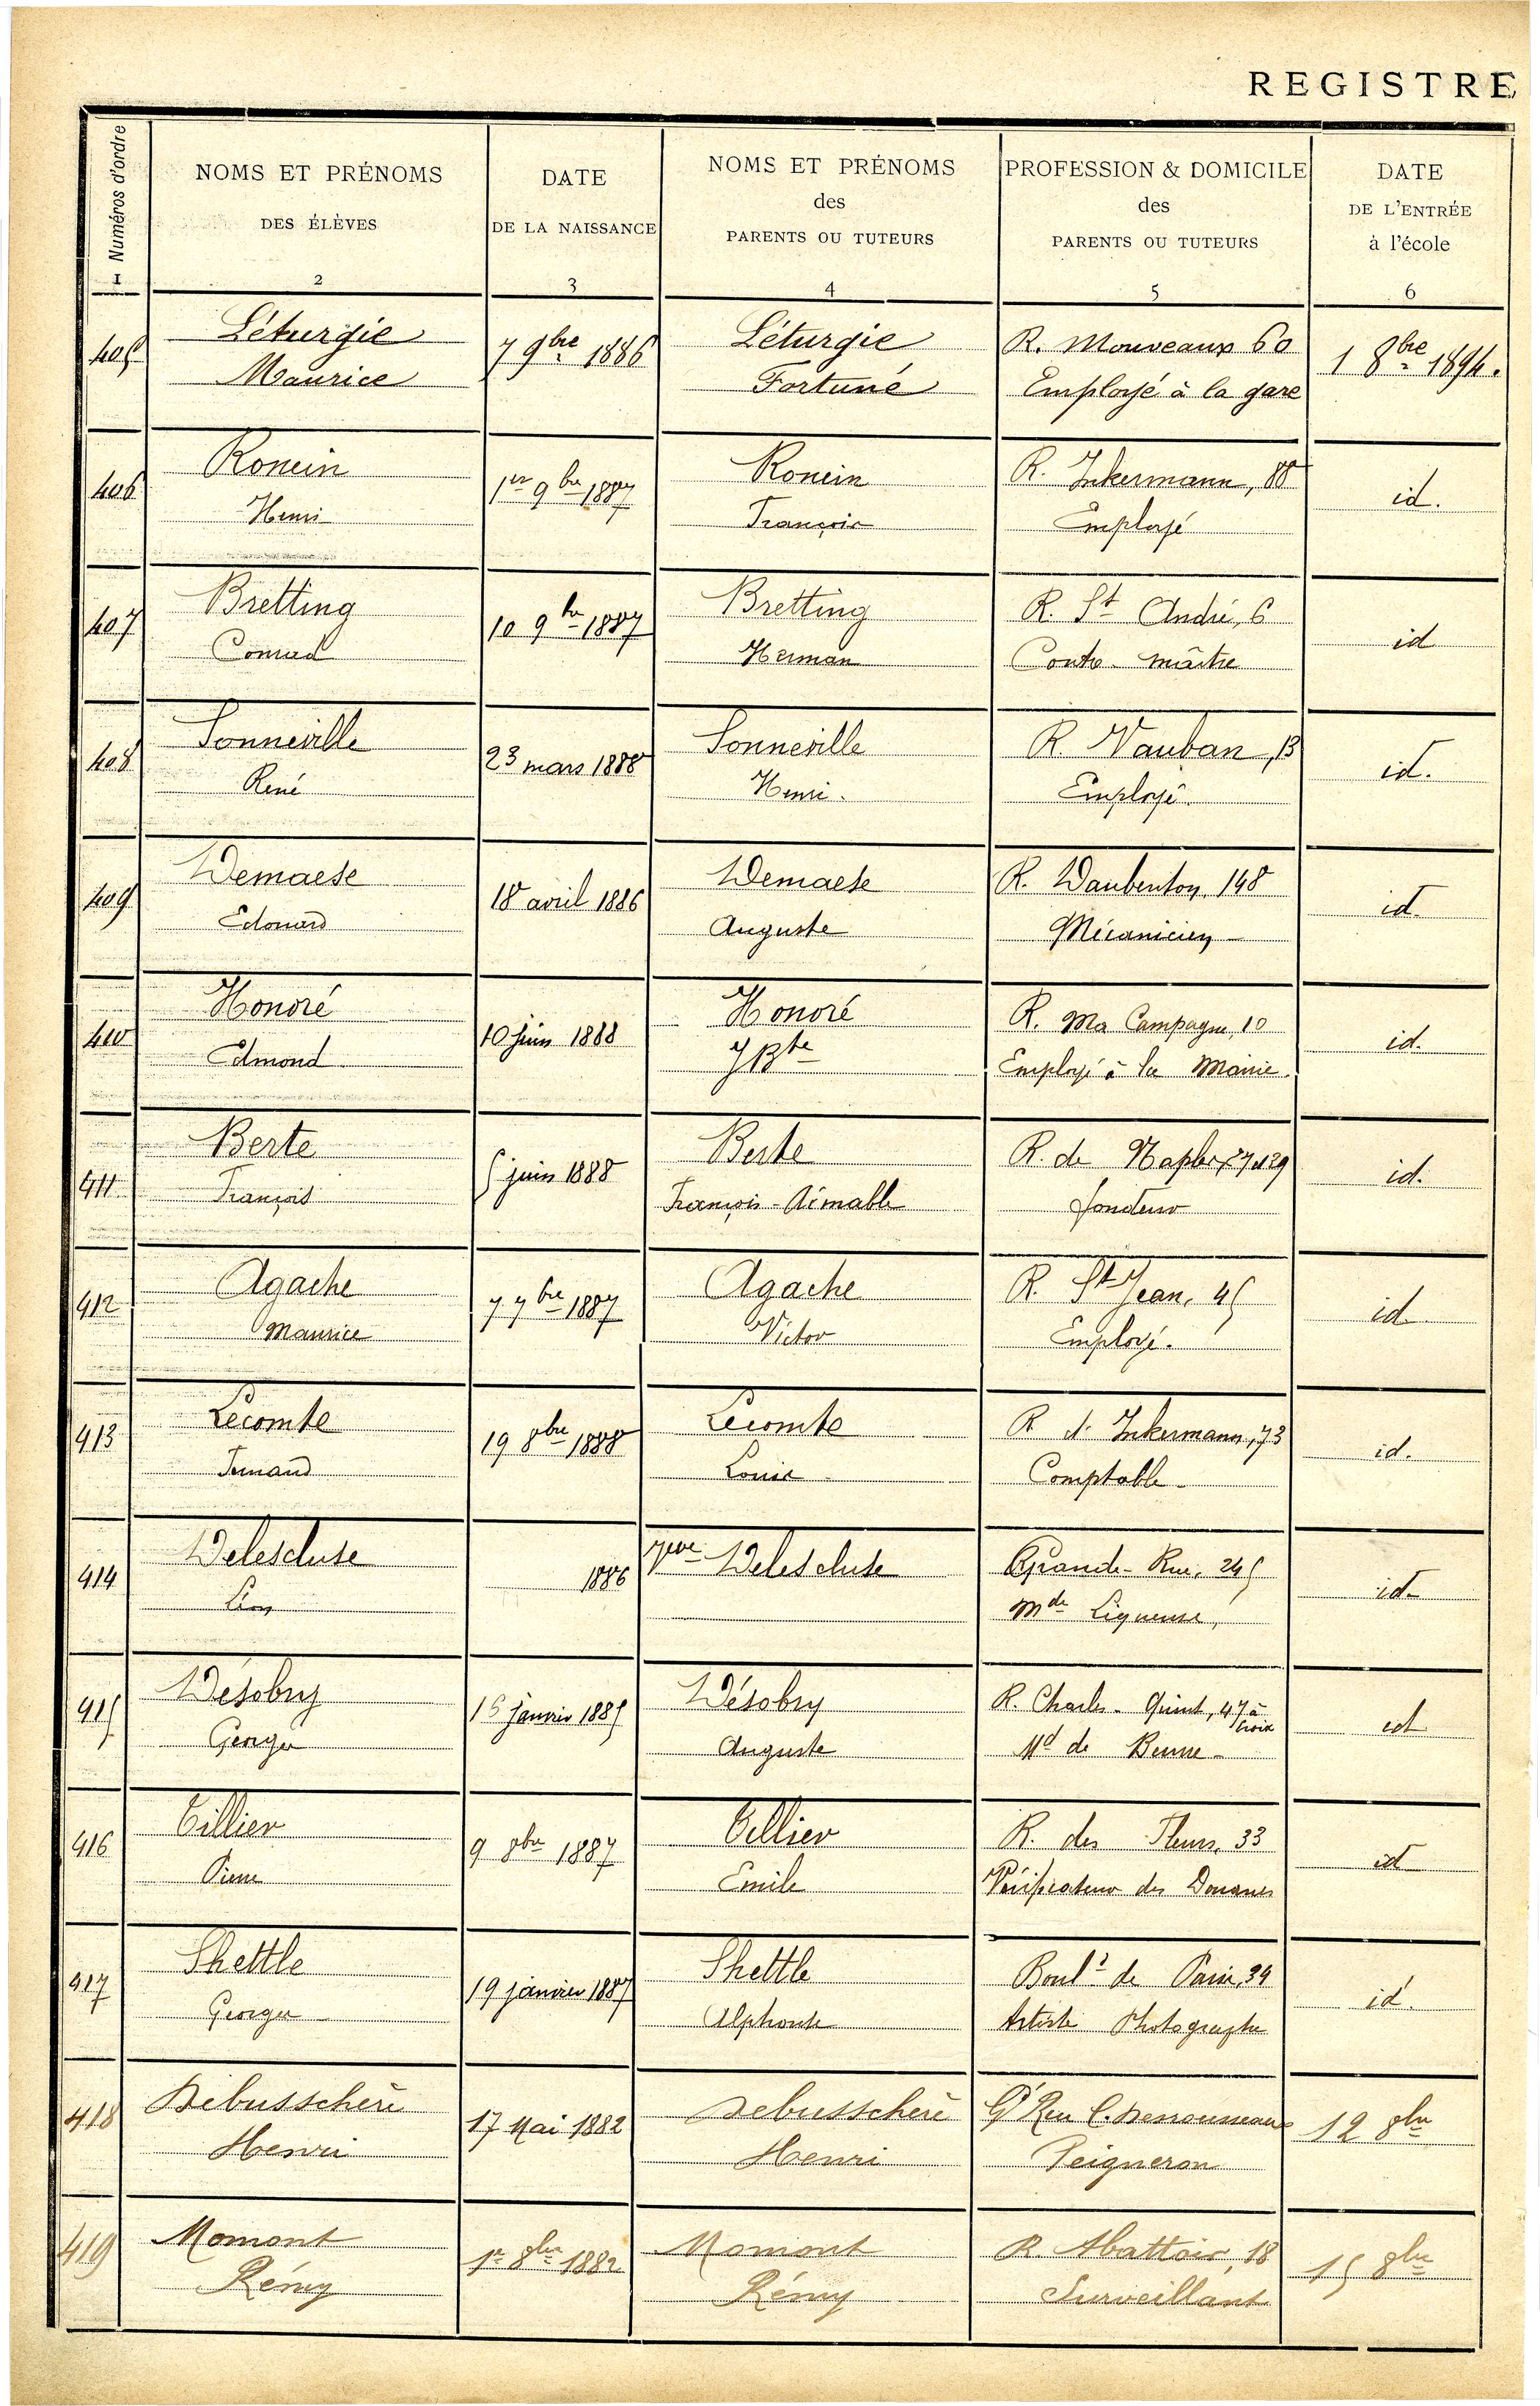 REGISTRE
Numéros d'ordre
1
NOMS ET PRÉNOMS
DES ÉLÈVES
2
DATE
DE LA NAISSANCE
3
NOMS ET PRÉNOMS
des
PARENTS OU TUTEURS
4
PROFESSION & DOMICILE
des
PARENTS OU TUTEURS
5
DATE
DE L'ENTRÉE
à l'école
6
405
Léturgie
Maurice
7 9bre 1886
Léturgie
Fortuné
R. Mouveaux 60
Employé à la gare
1 8bre 1894.
406
Ronein
Henri
1er 9bre 1887
Ronein
François
R. Inkermann, 88
Employé
id.
407
Bretting
Conrad
10 9bre 1887
Bretting
Herman
R. St André, 6
Contre-maître
id
408
Sonneville
René
23 mars 1888
Sonneville
Henri.
R. Vauban, 13
Employé.
id.
409
Demaese
Edouard
18 avril 1886
Demaese
Auguste
R. Daubenton, 148
Mécanicien
id.
410
Honoré
Edmond
10 juin 1888
Honoré
J Bte
R. Ma Campagne, 10
Employé à la Mairie.
id.
411
Berte
François
5 juin 1888
Berte
François-Aimable
R. de Naples, 27 et 29
fondeur
id.
412
Agache
Maurice
7 7bre 1887
Agache
Victor
R. St Jean, 45
Employé.
id.
413
Lecomte
Fernand
19 8bre 1888
Lecomte
Louis
R d'Inkermann, 73
Comptable
id.
414
Delescluse
Léon
1886
Veuve Delescluse
Grande-Rue, 245
Mde Liqueurs,
id
415
Désobry
Georges
15 janvier 1885
Désobry
Auguste
R. Charles-Quint, 47 à Croix
Md de Beurre
id
416
Tillier
Pierre
9 8bre 1887
Tillier
Emile
R. des Fleurs, 33
Vérificateur des Douanes
id
417
Shettle
Georges
19 janvier 1887
Shettle
Alphonse
Bould de Paris, 34
Artiste Photographe
id.
418
Debusschère
Henri
17 Mai 1882
Debusschère
Henri
Gd Rue C. Desrousseaux
Peigneron
12 8bre
419
Momont
Rémy
1er 8bre 1882
Momont
Rémy
R. Abattoir, 18
Surveillant
15 8bre